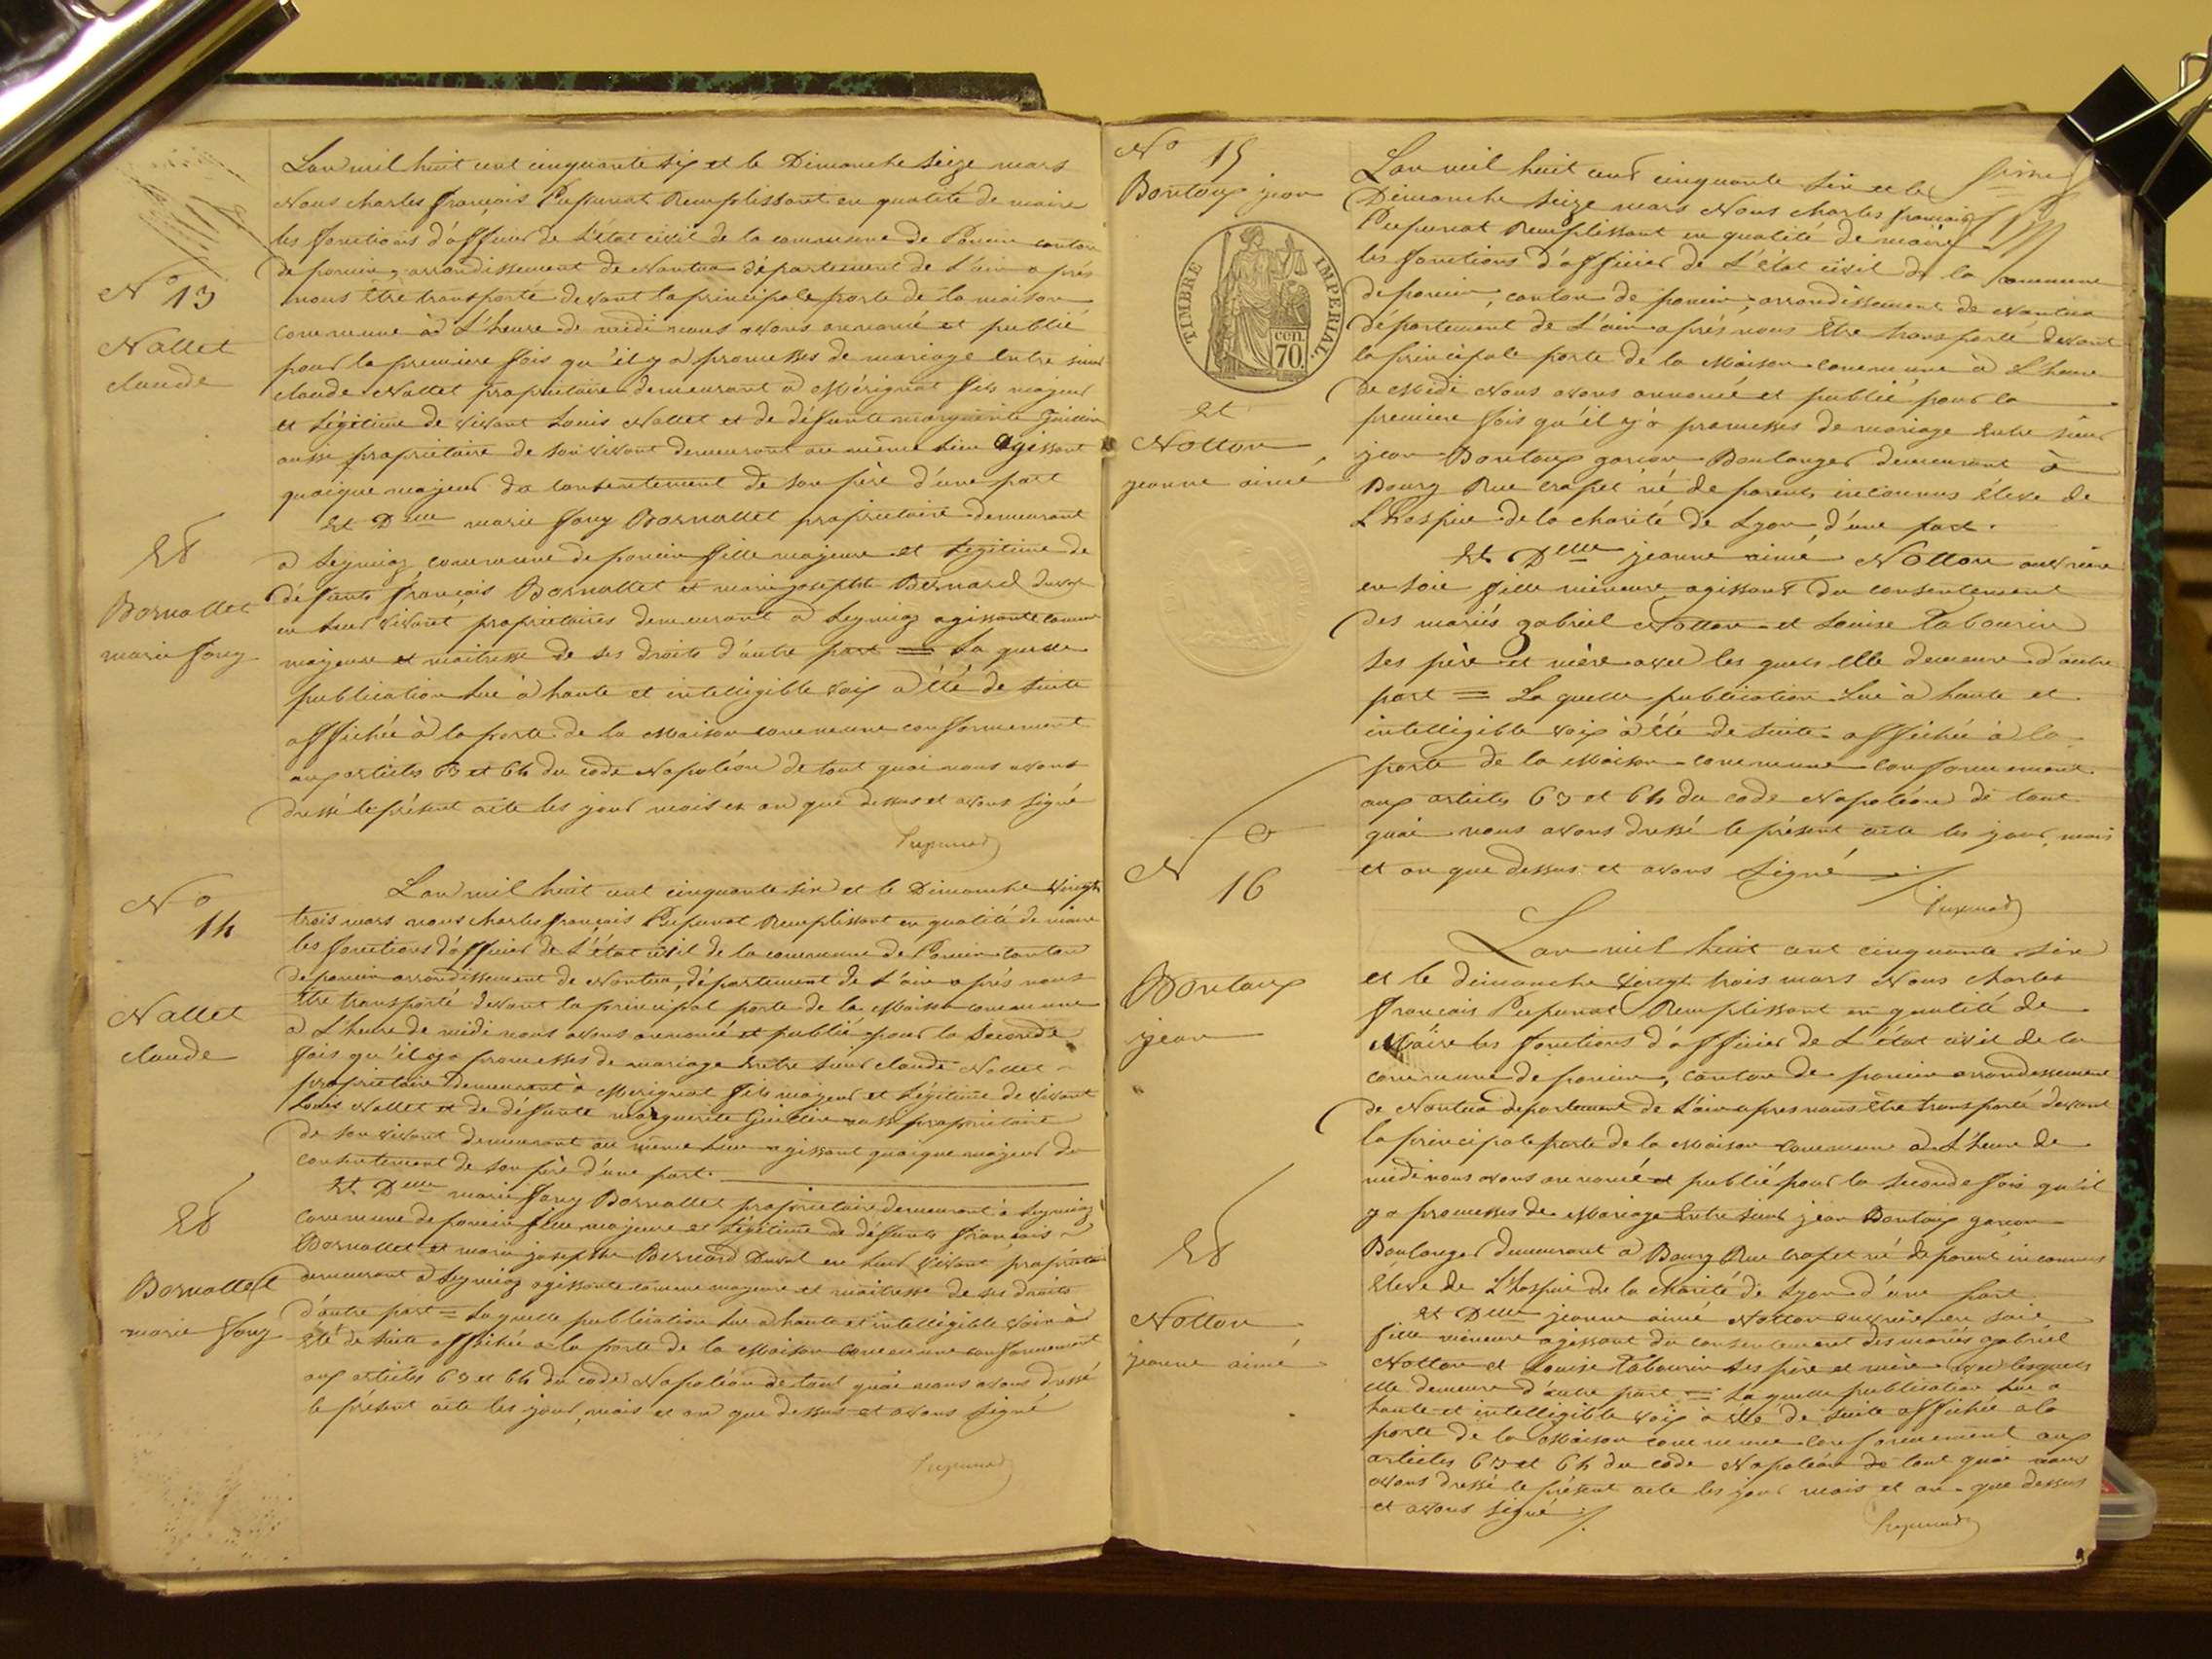 Lan mil huit cent cinquante six et le Dimanche seize mars
Nous charles françois Pupunat Remplissant en qualité de maire
les fonctions d'officier de L'état civil de la commune de Poncin canton
de poncin, arrondissement de Nantua département de L'ain après
nous être transporté devant la principale porte de la maison
commune à L'heure de midi nous avons annoncé et publié
pour la premiere fois qu'il y a promesses de mariage entre sieur
claude Nallet propriétaire demeurant à Mérignat fils majeur
et Légitime de vivant Louis Nallet et de défunte marguerite
aussi propriétaire de son vivant demeurant au même lieu Agissant
quoique majeur du consentement de son père d'une part
N° 13
Nallet
claude
Et
Bornallet
marie fany
Et Delle marie fany Bornallet propriétaire demeurant
à Leymiaz commune de poncin fille majeure et Légitime de
défunts françois Bornallet et marie josephte Bernard Duval
en Leur vivant propriétaires demeurant à Leymiaz agissante comme
majeure et maitresse de ses droits d'autre part = La quelle
publication Lue à haute et intelligible voix a été de suite
affichée à la porte de la Maison commune conformement
aux articles 63 et 64 du code Napoléon de tout quoi nous avons
dressé le présent acte les jour mois et an que dessus et avons signé
Pupunat
N° 14
Nallet
claude
Et
Bornallet
marie fany
Lan mil huit cent cinquante six et le Dimanche vingt
trois mars nous charles françois Pupunat Remplissant en qualité de maire
les fonctions d'officier de L'état civil de la commune de Poncin canton
de poncin arrondissement de Nantua, département de L'ain après nous
être transporté devant la principal porte de la Maison commune
à L'heure de midi nous avons annoncé et publié pour la Seconde
fois qu'il y a promesses de mariage Entre sieur claude Nallet
propriétaire demeurant à Merignat fils majeur et Légitime de vivant
Louis Nallet et de défunte marguerite aussi propriétaire
de son vivant demeurant au même lieu agissant quoique majeur du
consentement de son père d'une part.
Et Delle marie fany Bornallet propriétaire demeurant à Leymiaz
commune de poncin fille majeure et Légitime de défunts françois
Bornallet et marie josephte Bernard Duval en Leur vivant propriétaires
demeurant à Leymiaz agissante comme majeure et maitresse de ses droits
d'autre part = La quelle publication Lue à haute et intelligible voix à
été de suite affichée à la porte de la Maison commune conformement
aux articles 63 et 64 du code Napoléon de tout quoi nous avons dressé
le présent acte les jour, mois et an que dessus et avons signé
Pupunat
N° 15
Bontoux jean
TIMBRE IMPERIAL.
CEN. 70.
et
Notton
jeanne aimé
Lan mil huit cent cinquante six et le
Dimanche seize mars Nous charles français
Pupunat Remplissant en qualité de maire
les fonctions d'officier de L'état civil de la commune
de poncin, canton de poncin, arrondissement de Nantua
département de L'ain après nous être transporté devant
la principale porte de la Maison commune à L'heure
de Midi Nous avons annoncé et publié pour la
premiere fois qu'il y à promesses de mariage entre sieur
jean Bontoux garcon Boulanger demeurant à
Bourg Rue crapet né de parents inconnus élève de
L'hospice de la charité de Lyon d'une part.
Et Delle jeanne aimé Notton ouvrière
en soie fille mineure agissant du consentement
des mariés gabriel Notton et Louise Tabourin
ses père et mère avec les quels elle demeure d'autre
part = La quelle publication Lue à haute et
intelligible voix à été de suite affichée à la
porte de la Maison commune conformement
aux articles 63 et 64 du code Napoléon de tout
quoi nous avons dressé le présent acte les jour, mois
et an que dessus et avons signé ./.
Pupunat
N° 16
Bontoux
jean
Et
Notton
jeanne aimé
Lan mil huit cent cinquante six
et le dimanche vingt trois mars Nous charles
francais Pupunat Remplissant en qualité de
Maire les fonctions d'officier de L'état civil de la
commune de poncin, canton de poncin arrondissement
de Nantua departement de L'ain apres nous être transporté devant
la principale porte de la Maison commune à L'heure de
midi nous avons annoncé et publié pour la seconde fois qu'il
y a promesses de Mariage Entre sieur jean Bontoux garcon
Boulanger demeurant à Bourg Rue crapet né de parent inconnus
élève de L'hospice de la charité de Lyon d'une part
et Delle jeanne aimé Notton ouvrière en soie
fille mineure agissant du consentement des mariés gabriel
Notton et Louise Tabourin ses père et mère avec lesquels
elle demeure d'autre part = La quelle publication Lue a
haute et intelligible voix à été de suite affichée a la
porte de la Maison commune conformement aux
articles 63 et 64 du code Napoléon de tout quoi nous
avons dressé le présent acte les jour mois et an que dessus
et avons signé ./.
Pupunat